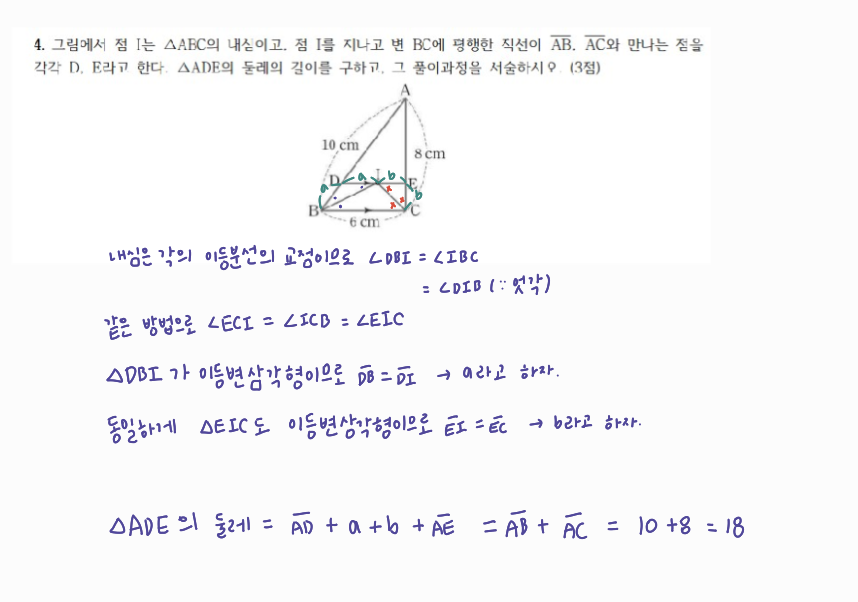 4. 그림에서 점 I는 △ABC의 내심이고, 점 I를 지나고 변 BC에 평행한 직선이 AB, AC와 만나는 점을
각각 D, E라고 한다. △ADE의 둘레의 길이를 구하고, 그 풀이과정을 서술하시오. (3점)
A
10 cm
8 cm
D a I b E
a b
B C
6 cm
내심은 각의 이등분선의 교점이므로 ∠DBI = ∠IBC
= ∠DIB (∵ 엇각)
같은 방법으로 ∠ECI = ∠ICB = ∠EIC
△DBI 가 이등변삼각형이므로 DB = DI → a라고 하자.
동일하게 △EIC도 이등변삼각형이므로 EI = EC → b라고 하자.
△ADE의 둘레 = AD + a + b + AE = AB + AC = 10 + 8 = 18